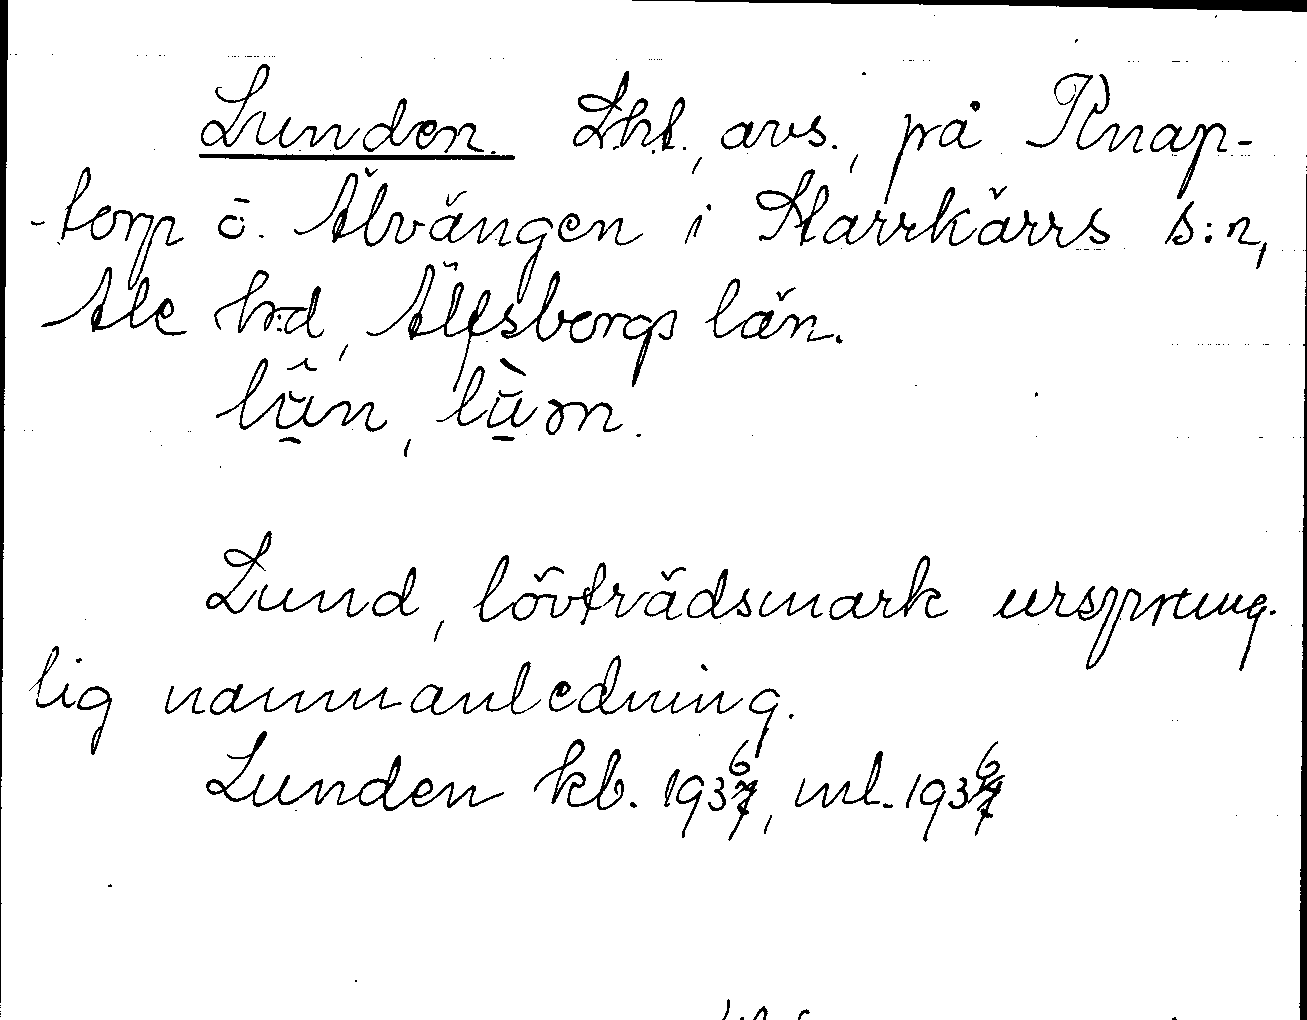 Lunden. Lht., avs., på Knap-
-torp ö. Älvängen i Starrkärrs s:n,
Ale h:d, Älfsborgs län.
lũn, lùən.
Lund, lövträdsmark ursprung-
lig namnanledning.
Lunden kb. 1936, ml. 1936